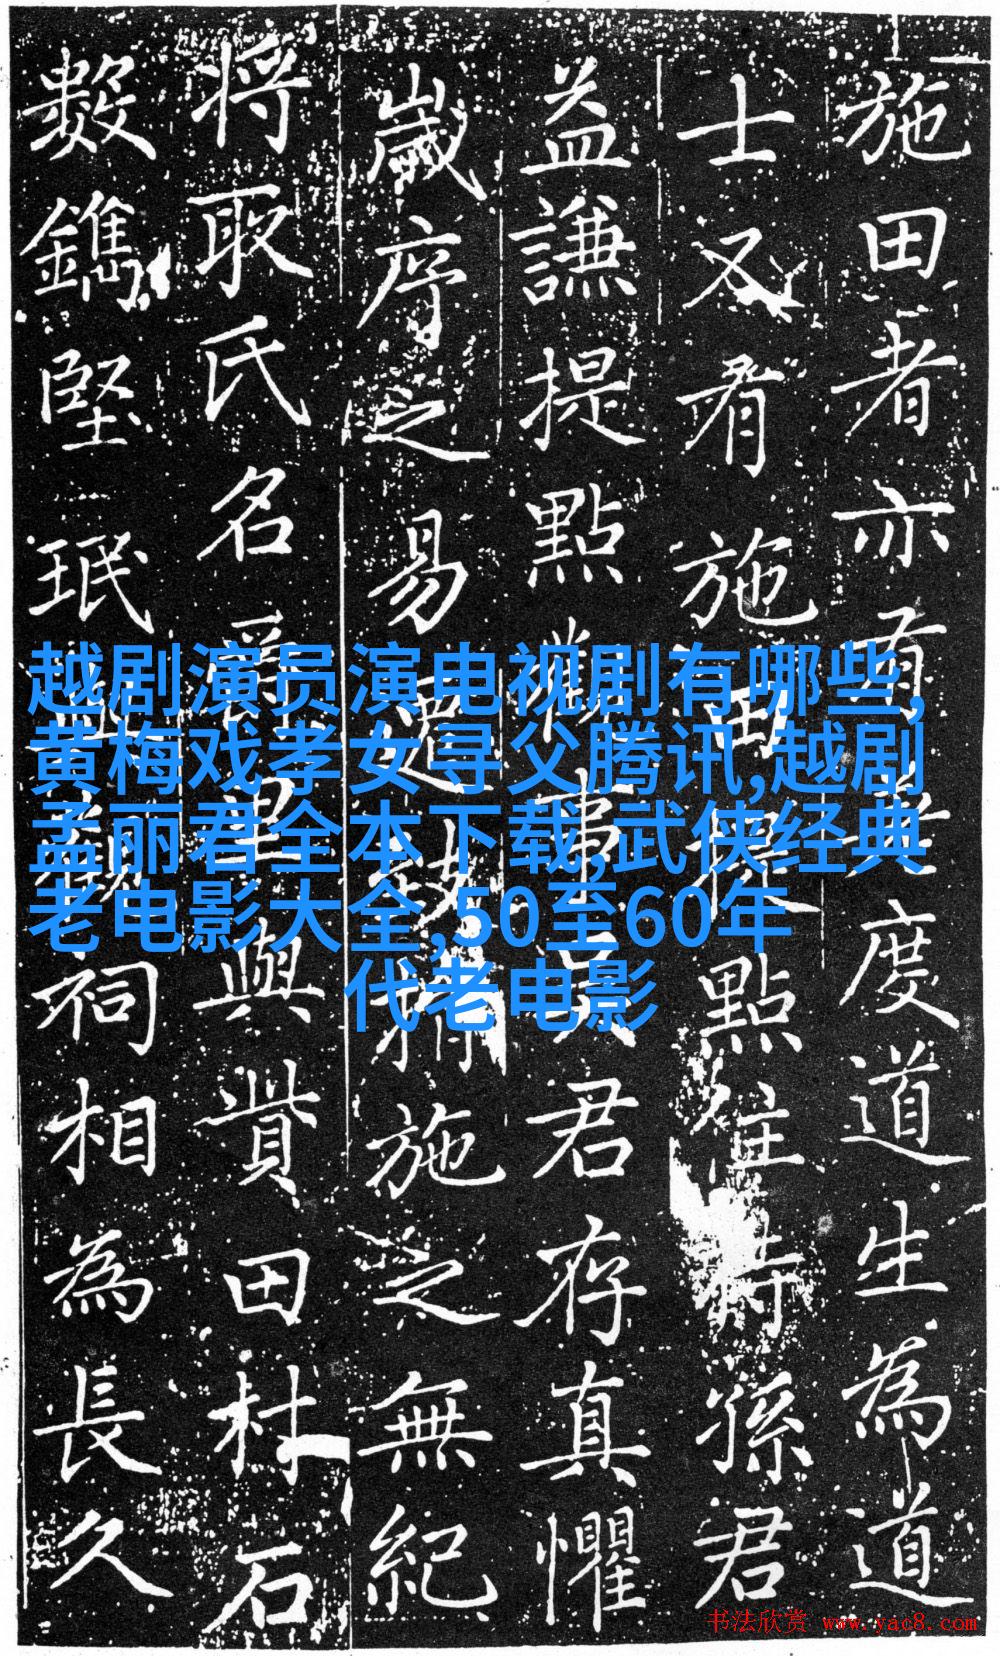 施田者亦有度道生為道
士又有施田提點住持孫君
益謙提點事君存真懼
歲序之易遷施之無紀
將取氏名爵里與貲田杜石
數鐫堅珉與祠相為長久
越剧演员演电视剧有哪些,
黄梅戏孝女寻父腾讯,越剧
孟丽君全本下载,武侠经典
老电影大全,50至60年
代老电影
书法欣赏 www.yac8.com